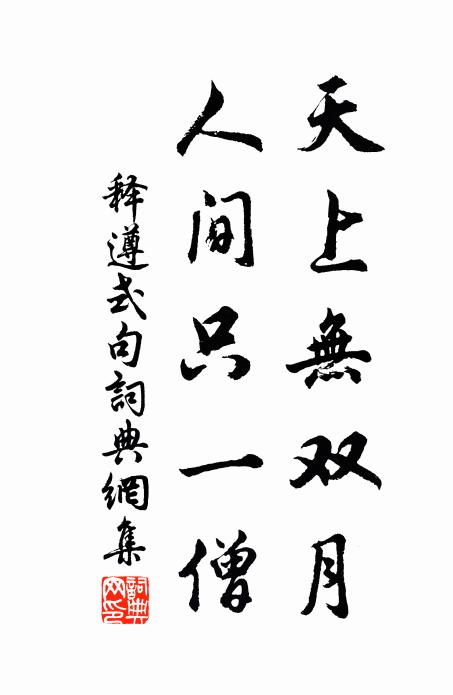 天上無双月
人间只一僧
释遵式句詞典網集
詞典网印